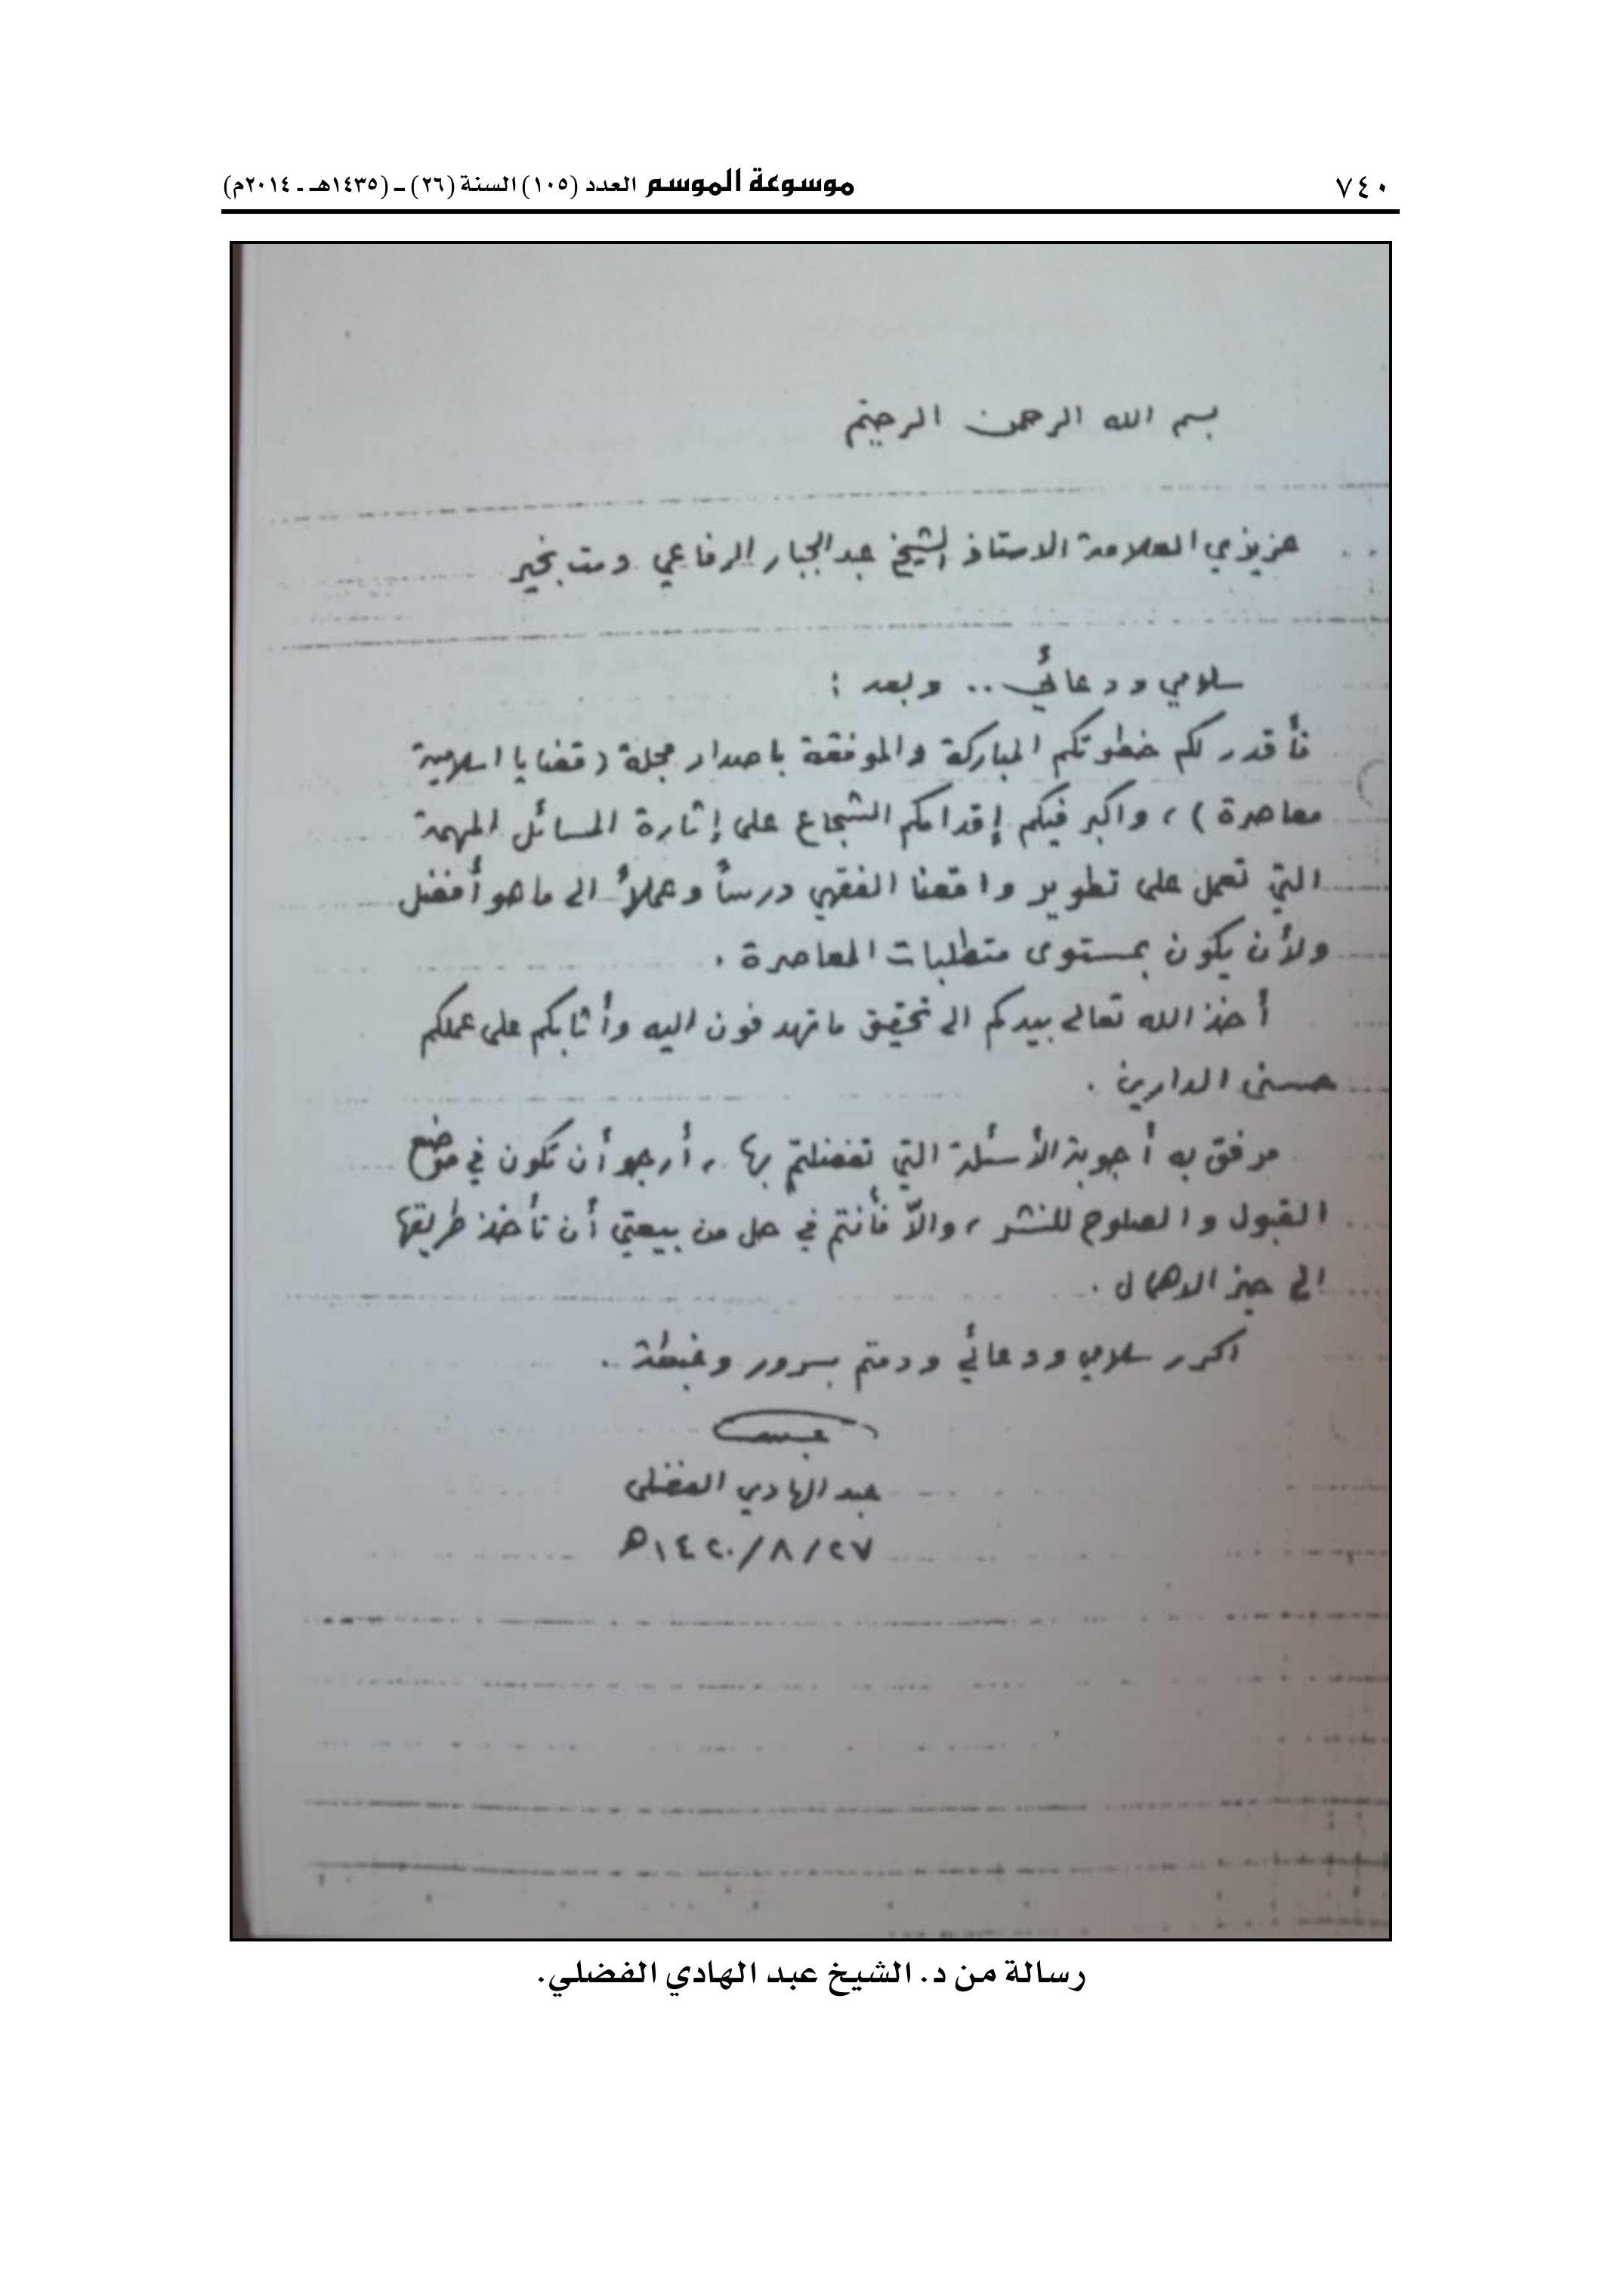 ٧٤٠
موسوعة الموسم العدد (١٠٥) السنة (٢٦) ـ (١٤٣٥هـ ـ ٢٠١٤م)
بسم الله الرحمن الرحيم
عزيزي العلامة الاستاذ الشيخ عبدالجبار الرفاعي دمت بخير
سلامي ودعائي .. وبعد :
فأقدر لكم خطوتكم المباركة والموفقة باصدار مجلة (قضايا اسلامية
معاصرة) ، واكبر فيكم إقدامكم الشجاع على إثارة المسائل المهمة
التي تعمل على تطوير واقعنا الفقهي درساً وعملاً الى ما هو أفضل
ولأن يكون بمستوى متطلبات المعاصرة .
أخذ الله تعالى بيدكم الى تحقيق ما تهدفون اليه وأثابكم على عملكم
حسنى الدارين .
مرفق به أجوبة الأسئلة التي تفضلتم بها ، أرجو أن تكون في موضع
القبول والصلوح للنشر ، والاّ فأنتم في حل من بيعتي أن تأخذ طريقها
الى حيز الاهمال .
اكرر سلامي ودعائي ودمتم بسرور وغبطة ..
عبد الهادي الفضلي
١٤٢٠/٨/٢٧ه
رسالة من د. الشيخ عبد الهادي الفضلي.